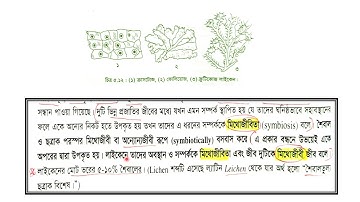 ১ ২ ৩
চিত্র ৫.১২ : (১) ক্রাসটোজ, (২) ফোলিয়োজ, (৩) ফ্রুটিকোজ লাইকেন।
সন্ধান পাওয়া গিয়েছে। (দুটি ভিন্ন প্রজাতির জীবের মধ্যে যখন এমন সম্পর্ক স্থাপিত হয় যে তাদের ঘনিষ্ঠভাবে সহাবস্থানের
ফলে একে অন্যের নিকট হতে উপকৃত হয় তখন তাদের এ ধরনের সম্পর্ককে মিথোজীবিতা (symbiosis) বলে। শৈবাল
ও ছত্রাক পরস্পর মিথোজীবী বা অন্যোন্যজীবী রূপে (symbiotically) বসবাস করে। এ প্রকার বন্ধনে উভয়েই একে
অপরের দ্বারা উপকৃত হয়। লাইকেনে তাদের অবস্থান ও সম্পর্ককে মিথোজীবিতা এবং জীব দুটিকে মিথোজীবী জীব বলে।
লাইকেনের মোট ভরের ৫-১০% শৈবালের। (Lichen শব্দটি এসেছে ল্যাটিন Leichen থেকে যার অর্থ হলো "শৈবালতুল্য
ছত্রাক বিশেষ"।)